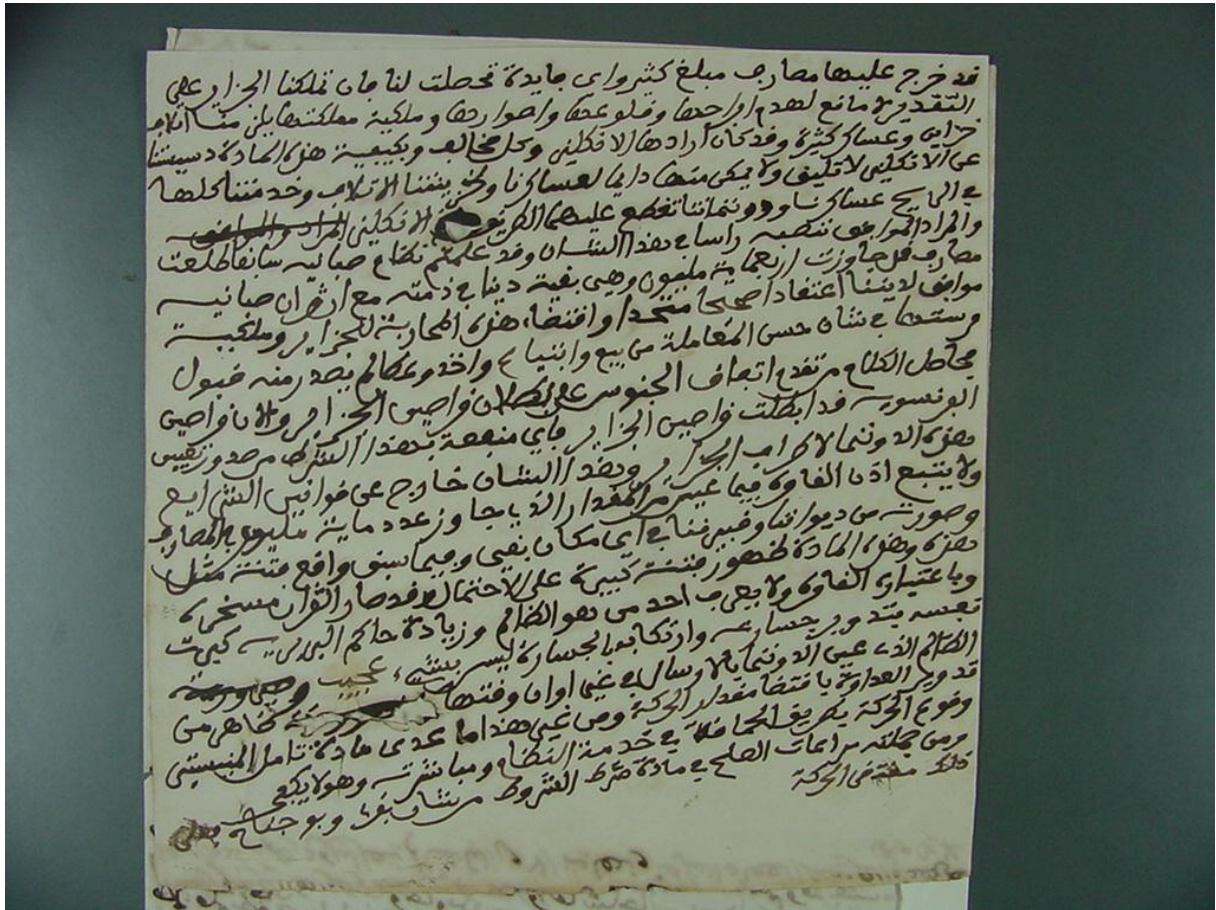 قد خرج عليها مصارف مبلغ كثير واي فايدة تحصلت لنا فان تملكنا الجزاير على
التقدير لا مانع لهدم ابراجها وقلوعها واصوارها وملكية مملكتها يلزمنا الاف
حرابى وعساكر كثيرة وقد كان ارادها الانكليز وكل مخالف وبكيفية هذه المادة دسيستنا
عن الانكليز لا تكيف ولا يمكن منها دايما لعساكرنا ولخزينتنا الاتلاف وخدمتنا كلها
في الريح عساكرنا ودونانماتنا تقطع عليهما الطريق الانكليز
والمراد الموافق ننصبه راسا في هذا الشان وقد علمتم نظام صبانيه سابقا طلعت
مصارف قد جاوزت اربعماية مليون وهي بقية دينا في ذمته مع ان قران صبانيه
موافق لديننا اعتقادا صحيحا متحدا واقتضاء هذه المحاربة للجزاير وملكية
مرستها في شان حسن المعاملة من بيع وابتياع واخذ وعطا لم يصدر منه قبول
محاصل الكلام من تقدم اتفاق الجنوس على بطلان قراصين الجزاير والان قراصين
الفرنسويه قد ابطلت قراصين الجزاير فاي منفعة بهذا الشرط مرصد وتعيين
هذه الدوننما لاطراف الجزاير وهذا الشان خارج عن قوانين الشرايع
ولا يتبع اذن الغاوه فيما عينه من المقدار الذي جاوز عدد ماية مليون بالمصارف
وصورته من ديواننا وخبيرتنا في اي مكان بقي وفيما سبق واقع فتنة مثل
هذه وهذه المادة ظهور فتنة كبيرة على الاحتمال وقد صار القران مسخره
وباعتباره الغاوه ولا يعرف احد من هو الظالم وزيادة حاكم البريه كيرت
نفسه بتدوير حسارعه وارتكابه بالجسارة ليس بشيء عجيب
الظالم الذي عين الدوننما بالارسال في غير اوان وقتها ظاهر من
تدوير العداوة باقتضا مقدار الحركة ومن غير هذا ما عدى مادة تامل المنسيتى
وقوع الحركة بطريق المحافلة في خدمة النظام ومباشرته وهو لا يكفى
ومن جملته مراعات الصلح في مادة شرط الشروط من شان بقرى وبوجناح
ذلك مقتضى الحركة